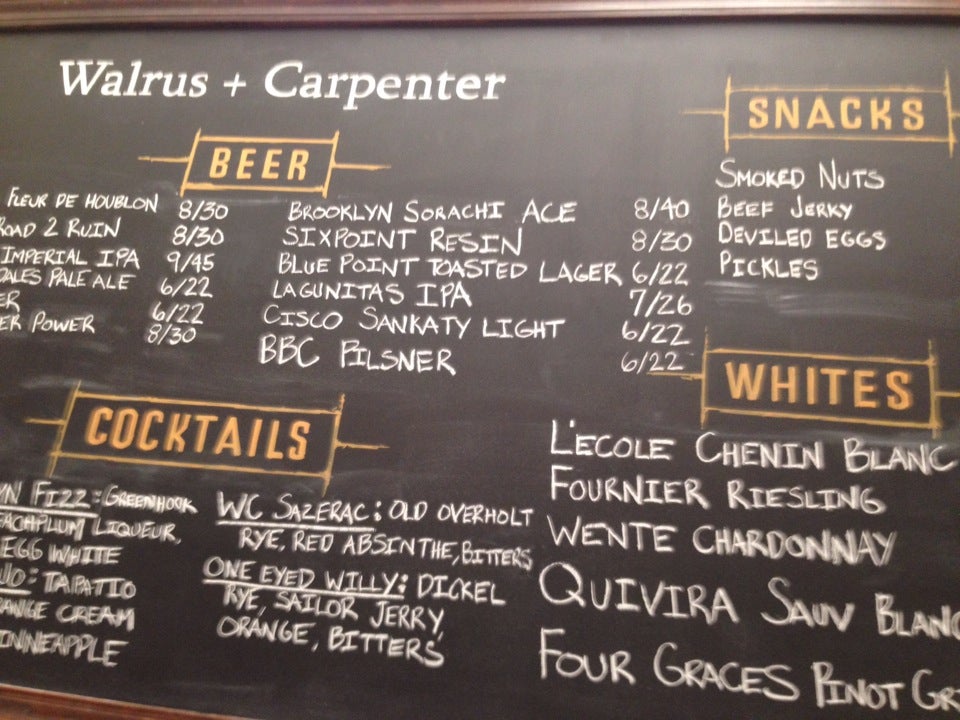 Walrus + Carpenter
BEER
FLEUR DE HOUBLON 8/30
ROAD 2 RUIN 8/30
IMPERIAL IPA 9/45
DALES PALE ALE 6/22
ER 6/22
ER POWER 8/30
BROOKLYN SORACHI ACE 8/40
SIXPOINT RESIN 8/30
BLUE POINT TOASTED LAGER 6/22
LAGUNITAS IPA 7/26
CISCO SANKATY LIGHT 6/22
BBC PILSNER 6/22
SNACKS
SMOKED NUTS
BEEF JERKY
DEVILED EGGS
PICKLES
COCKTAILS
YN FIZZ: GREENHOOK
EACHPLUM LIQUEUR,
EGG WHITE
: TAPATIO
ANGE CREAM
INNEAPPLE
WC SAZERAC: OLD OVERHOLT
RYE, RED ABSINTHE, BITTERS
ONE EYED WILLY: DICKEL
RYE, SAILOR JERRY,
ORANGE, BITTERS
WHITES
L'ECOLE CHENIN BLANC
FOURNIER RIESLING
WENTE CHARDONNAY
QUIVIRA SAUV BLANC
FOUR GRACES PINOT GR